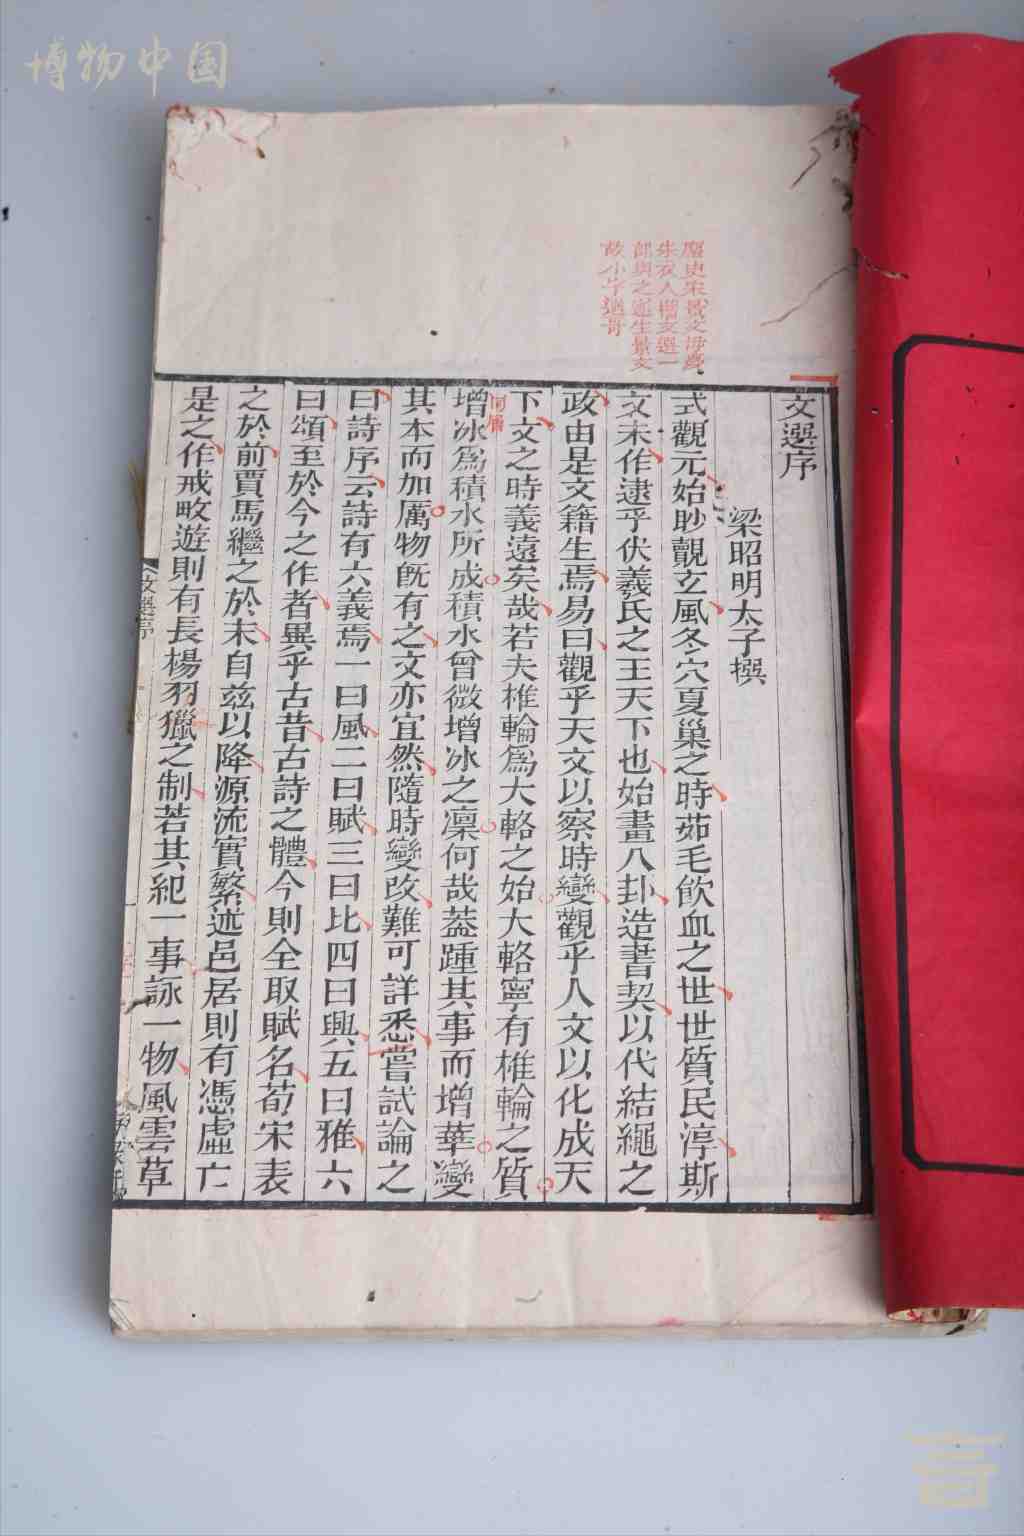 博物中国
塵史宋景文母夢
朱衣人攜文選一
部與之遂生景文
故小字選哥
文選序
梁昭明太子撰
式觀元始眇覿玄風冬穴夏巢之時茹毛飲血之世世質民淳斯
文未作逮乎伏羲氏之王天下也始畫八卦造書契以代結繩之
政由是文籍生焉易曰觀乎天文以察時變觀乎人文以化成天
下文之時義遠矣哉若夫椎輪爲大輅之始大輅寧有椎輪之質
增冰爲積水所成積水曾微增冰之凜何哉蓋踵其事而增華變
其本而加厲物旣有之文亦宜然隨時變改難可詳悉嘗試論之
曰詩序云詩有六義焉一曰風二曰賦三曰比四曰興五曰雅六
曰頌至於今之作者異乎古昔古詩之體今則全取賦名荀宋表
之於前賈馬繼之於末自茲以降源流實繁述邑居則有憑虛亡
是之作戒畋遊則有長楊羽獵之制若其紀一事詠一物風雲草
文選序